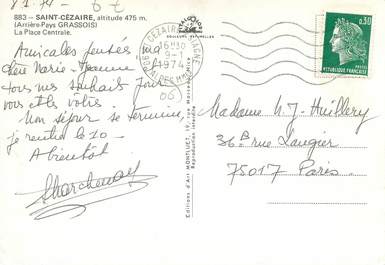 883 - SAINT-CÉZAIRE, altitude 475 m.
(Arrière-Pays GRASSOIS)
La Place Centrale.
Amicales pensées ma
chère Marie-Jeanne
tous mes souhaits pour
vous et les vôtres.
Mon séjour se termine,
je rentre le 10.
A bientôt
16H30
9-1
1974
06
Editions d'Art MONTLUET, 19, rue
Reproduction interdite
0,30
POSTES
RÉPUBLIQUE FRANÇAISE
Madame M-J- Huillery
36 rue Laugier
75017 Paris